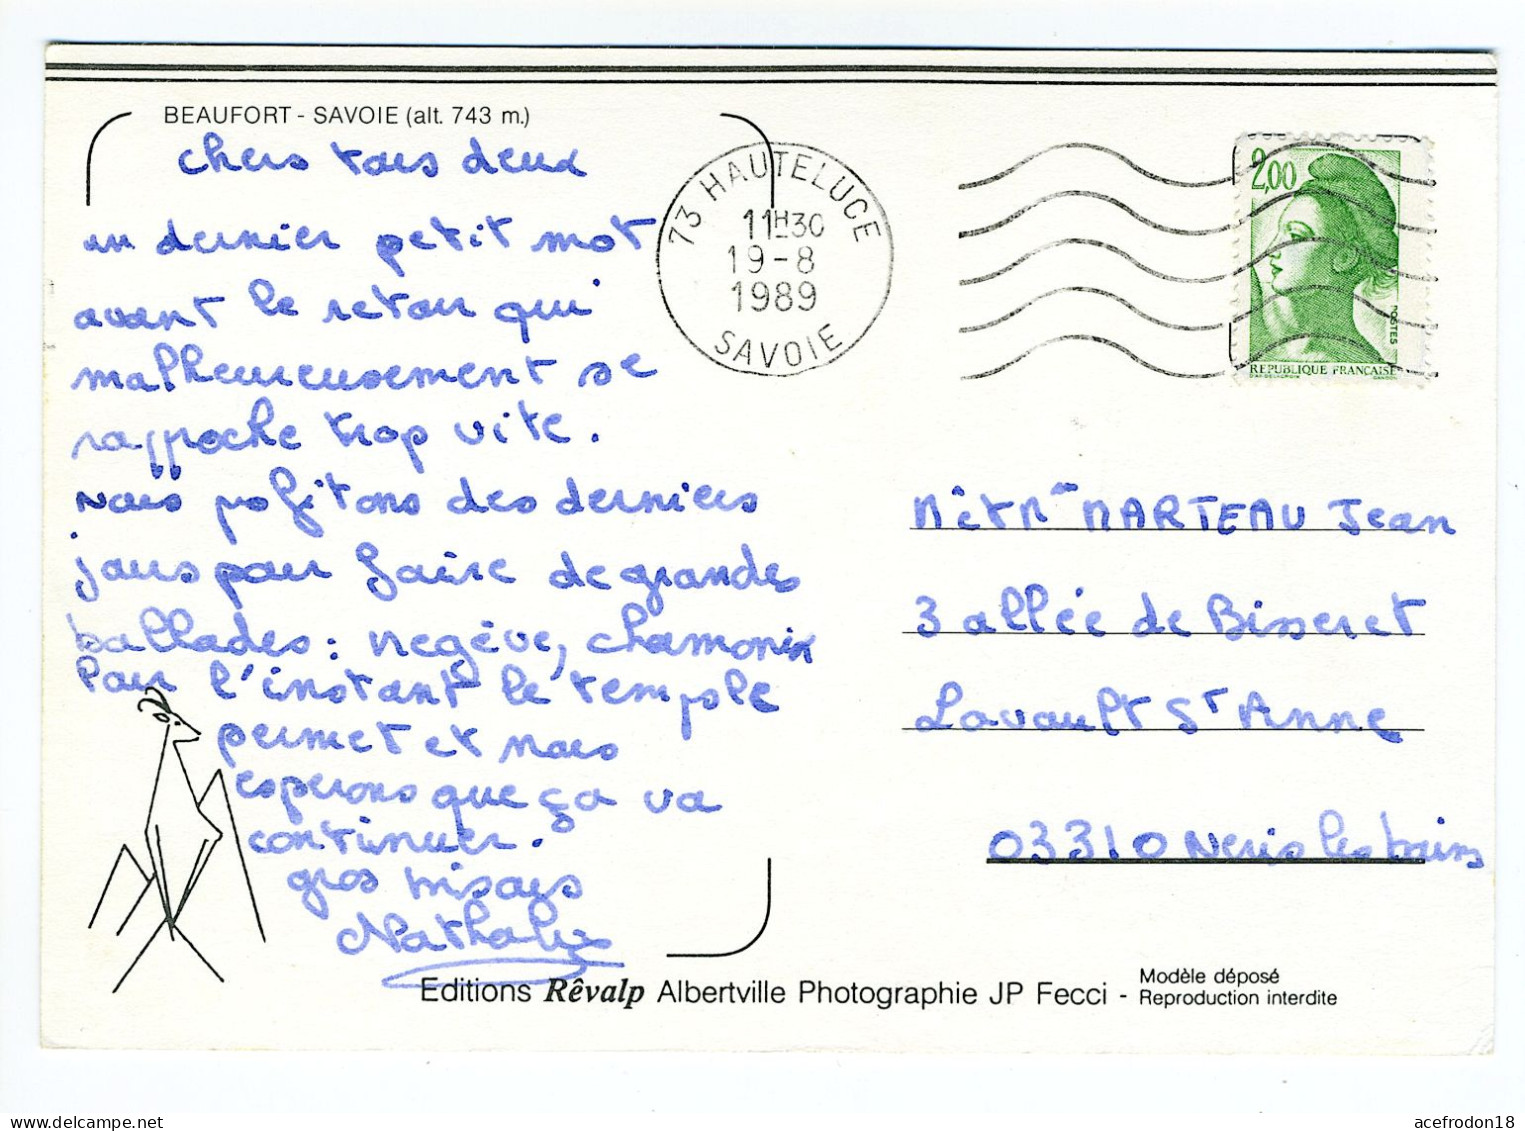 BEAUFORT - SAVOIE (alt. 743 m.)
chers tous deux
un dernier petit mot
avant le retour qui
malheureusement se
rapproche trop vite.
Nous pofitons des derniers
jours pour faire de grandes
ballades : Megève, chamonix
Pour l'instant le temps le
permet et nous
esperons que ça va
continuer.
gros bisous
Nathalie
73 HAUTELUCE
11H30
19-8
1989
SAVOIE
2,00
POSTES
REPUBLIQUE FRANÇAISE
D'AP. DELACROIX GANDON
M et Mme MARTEAU Jean
3 allée de Bisseret
Lavault St Anne
03310 Neris les bains
Editions Rêvalp Albertville Photographie JP Fecci - Modèle déposé
Reproduction interdite
acefrodon18